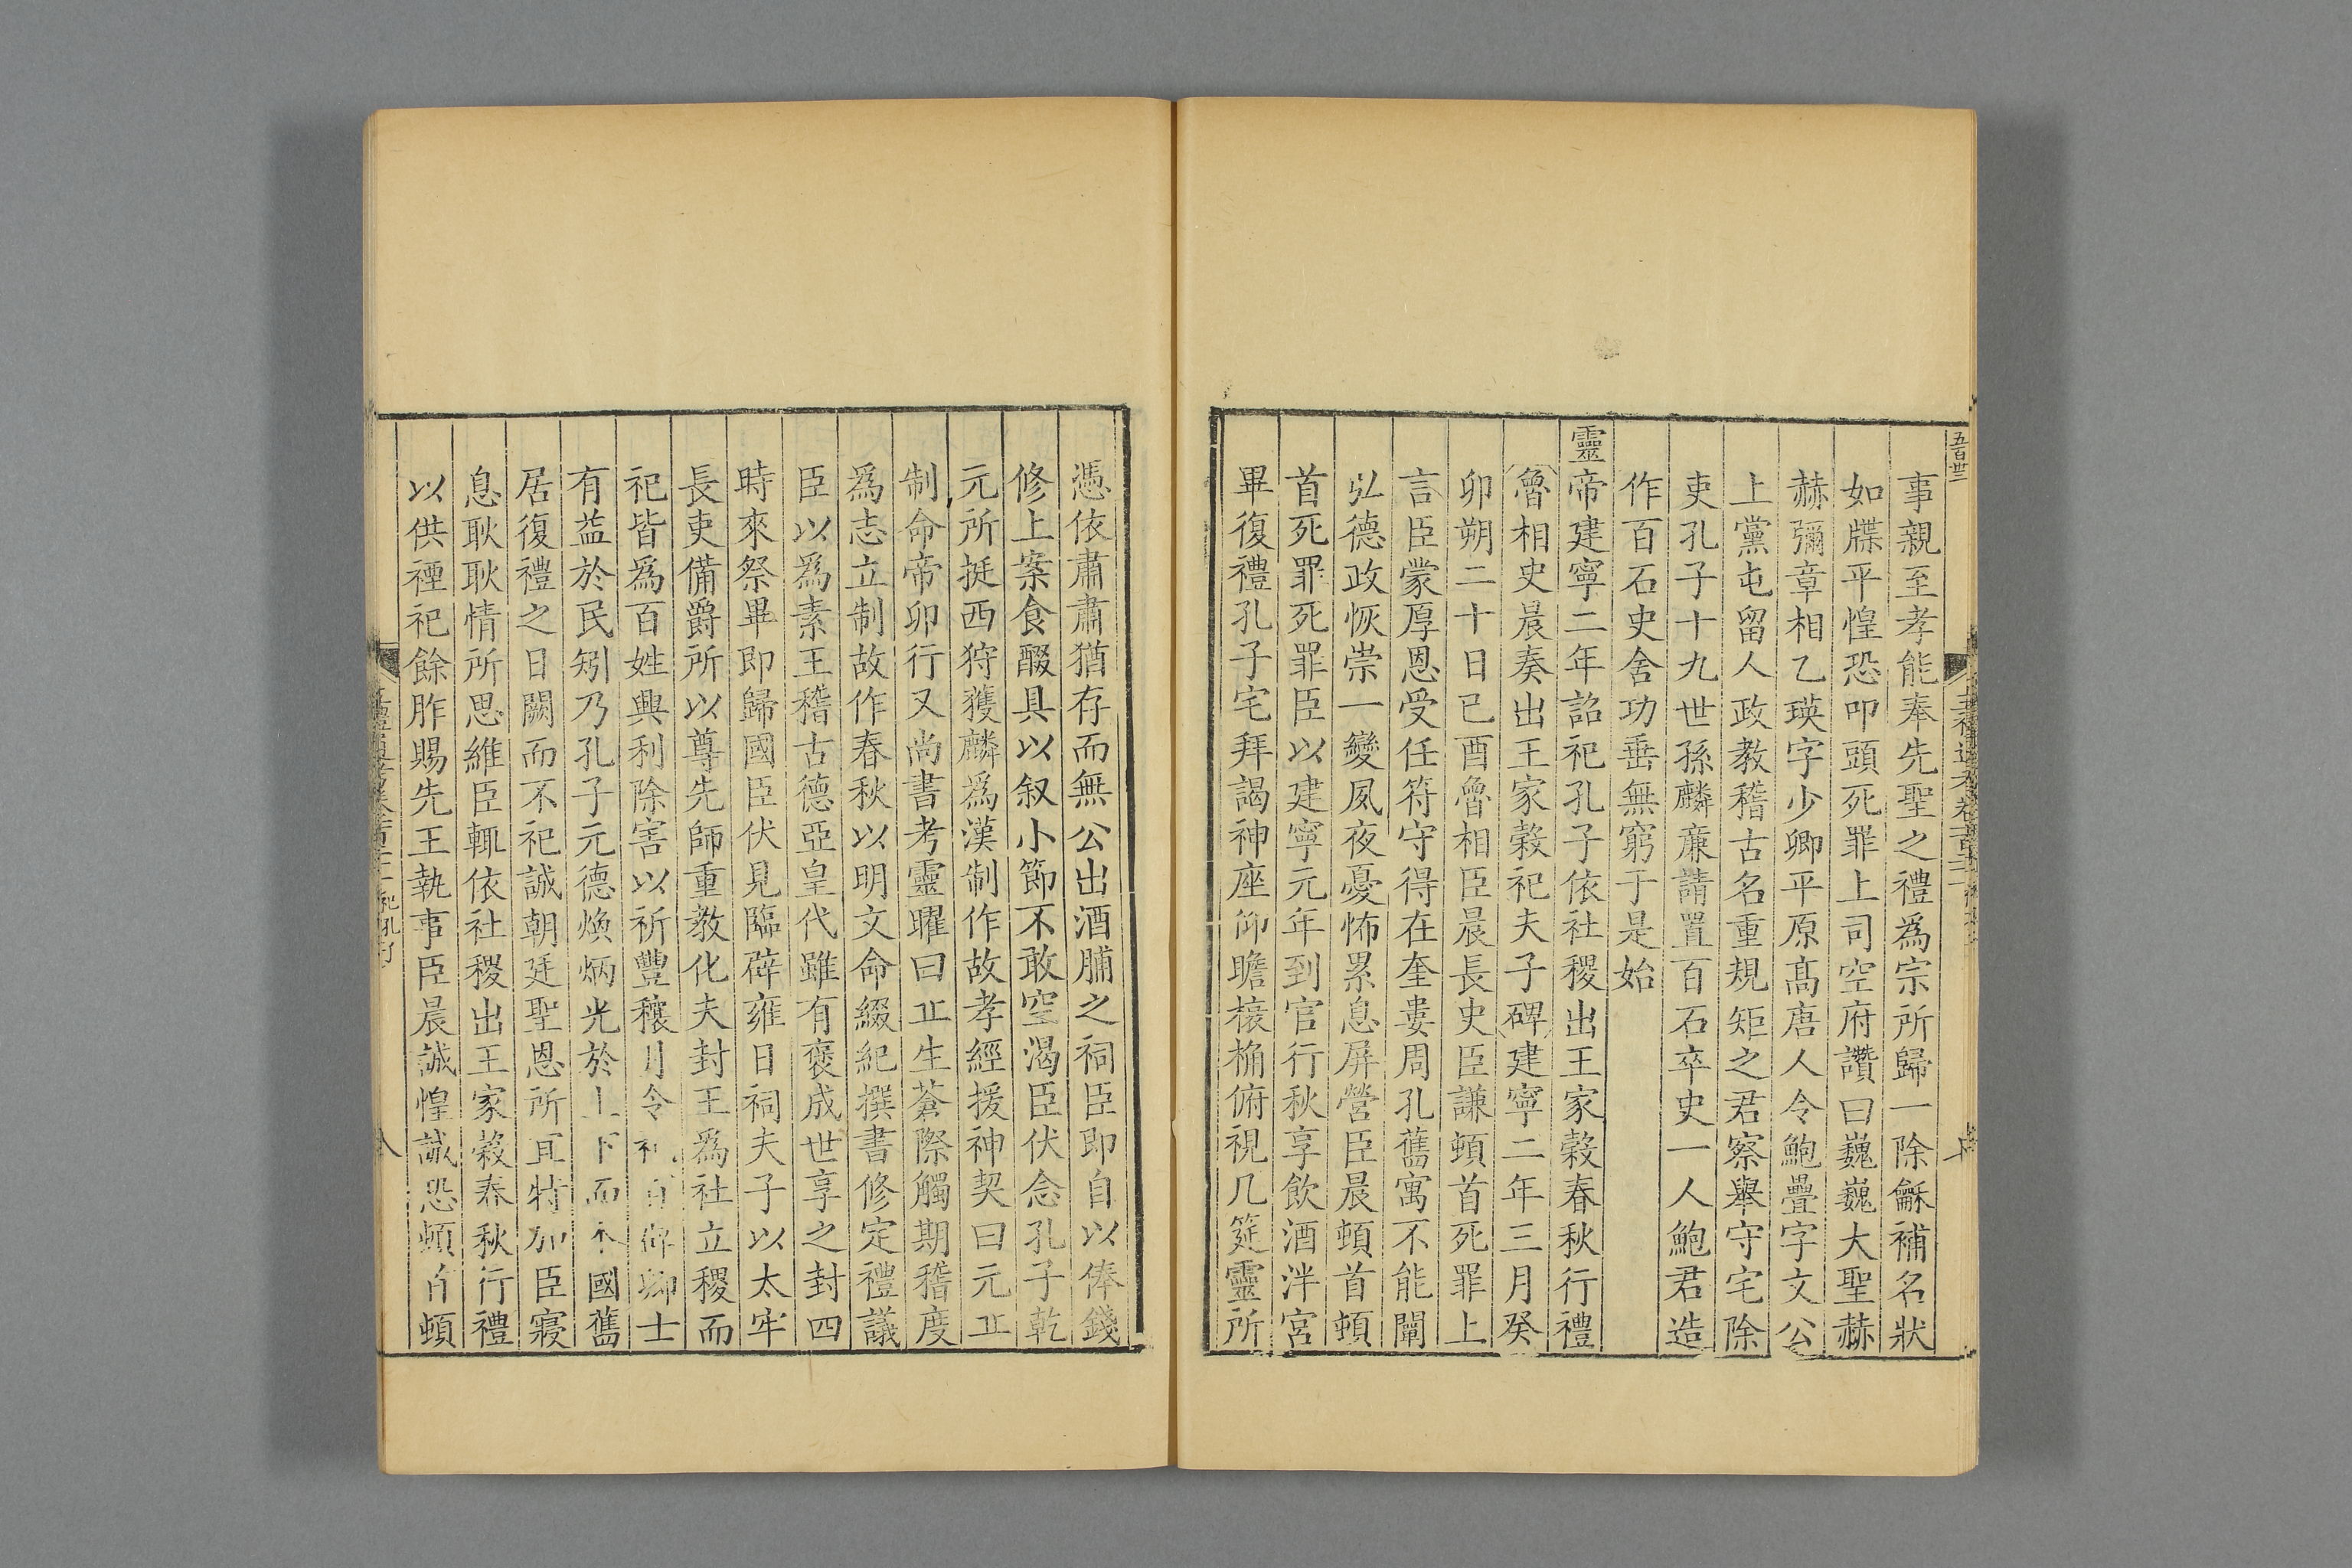 五百卅三
事親至孝能奉先聖之禮爲宗所歸一除龢補名狀
如牒平惶恐叩頭死罪上司空府讚曰巍巍大聖赫
赫彌章相乙瑛字少卿平原髙唐人令鮑疊字文公
上黨屯留人政教稽古名重規矩之君察舉守宅除
吏孔子十九世孫麟廉請置百石卒史一人鮑君造
作百石史舍功垂無窮于是始
靈帝建寧二年詔祀孔子依社稷出王家穀春秋行禮
魯相史晨奏出王家穀祀夫子碑建寧二年三月癸
卯朔二十日己酉魯相臣晨長史臣謙頓首死罪上
言臣蒙厚恩受任符守得在奎婁周孔舊寓不能闡
弘德政恢崇一變夙夜憂怖累息屏營臣晨頓首頓
首死罪死罪臣以建寧元年到官行秋享飲酒泮宮
畢復禮孔子宅拜謁神座仰瞻榱桷俯視几筵靈所
憑依肅肅猶存而無公出酒脯之祠臣即自以俸錢
修上案食醊具以叙小節不敢空渴臣伏念孔子乾
元所挺西狩獲麟爲漢制作故孝經援神契曰元𠀉
制命帝卯行又尚書考靈曜曰𠀉生蒼際觸期稽度
爲志立制故作春秋以明文命綴紀撰書修定禮議
臣以爲素王稽古德亞皇代雖有褒成世享之封四
時來祭畢即歸國臣伏見臨辟雍日祠夫子以太牢
長吏備爵所以尊先師重教化夫封王爲社立稷而
祀皆爲百姓興利除害以祈豐穰月令祀百辟卿士
有益於民矧乃孔子元德煥炳光於上下而本國舊
居復禮之日闕而不祀誠朝廷聖恩所宜特加臣寢
息耿耿情所思維臣輒依社稷出王家穀春秋行禮
以供禋祀餘胙賜先王執事臣晨誠惶誠恐頓首頓
八